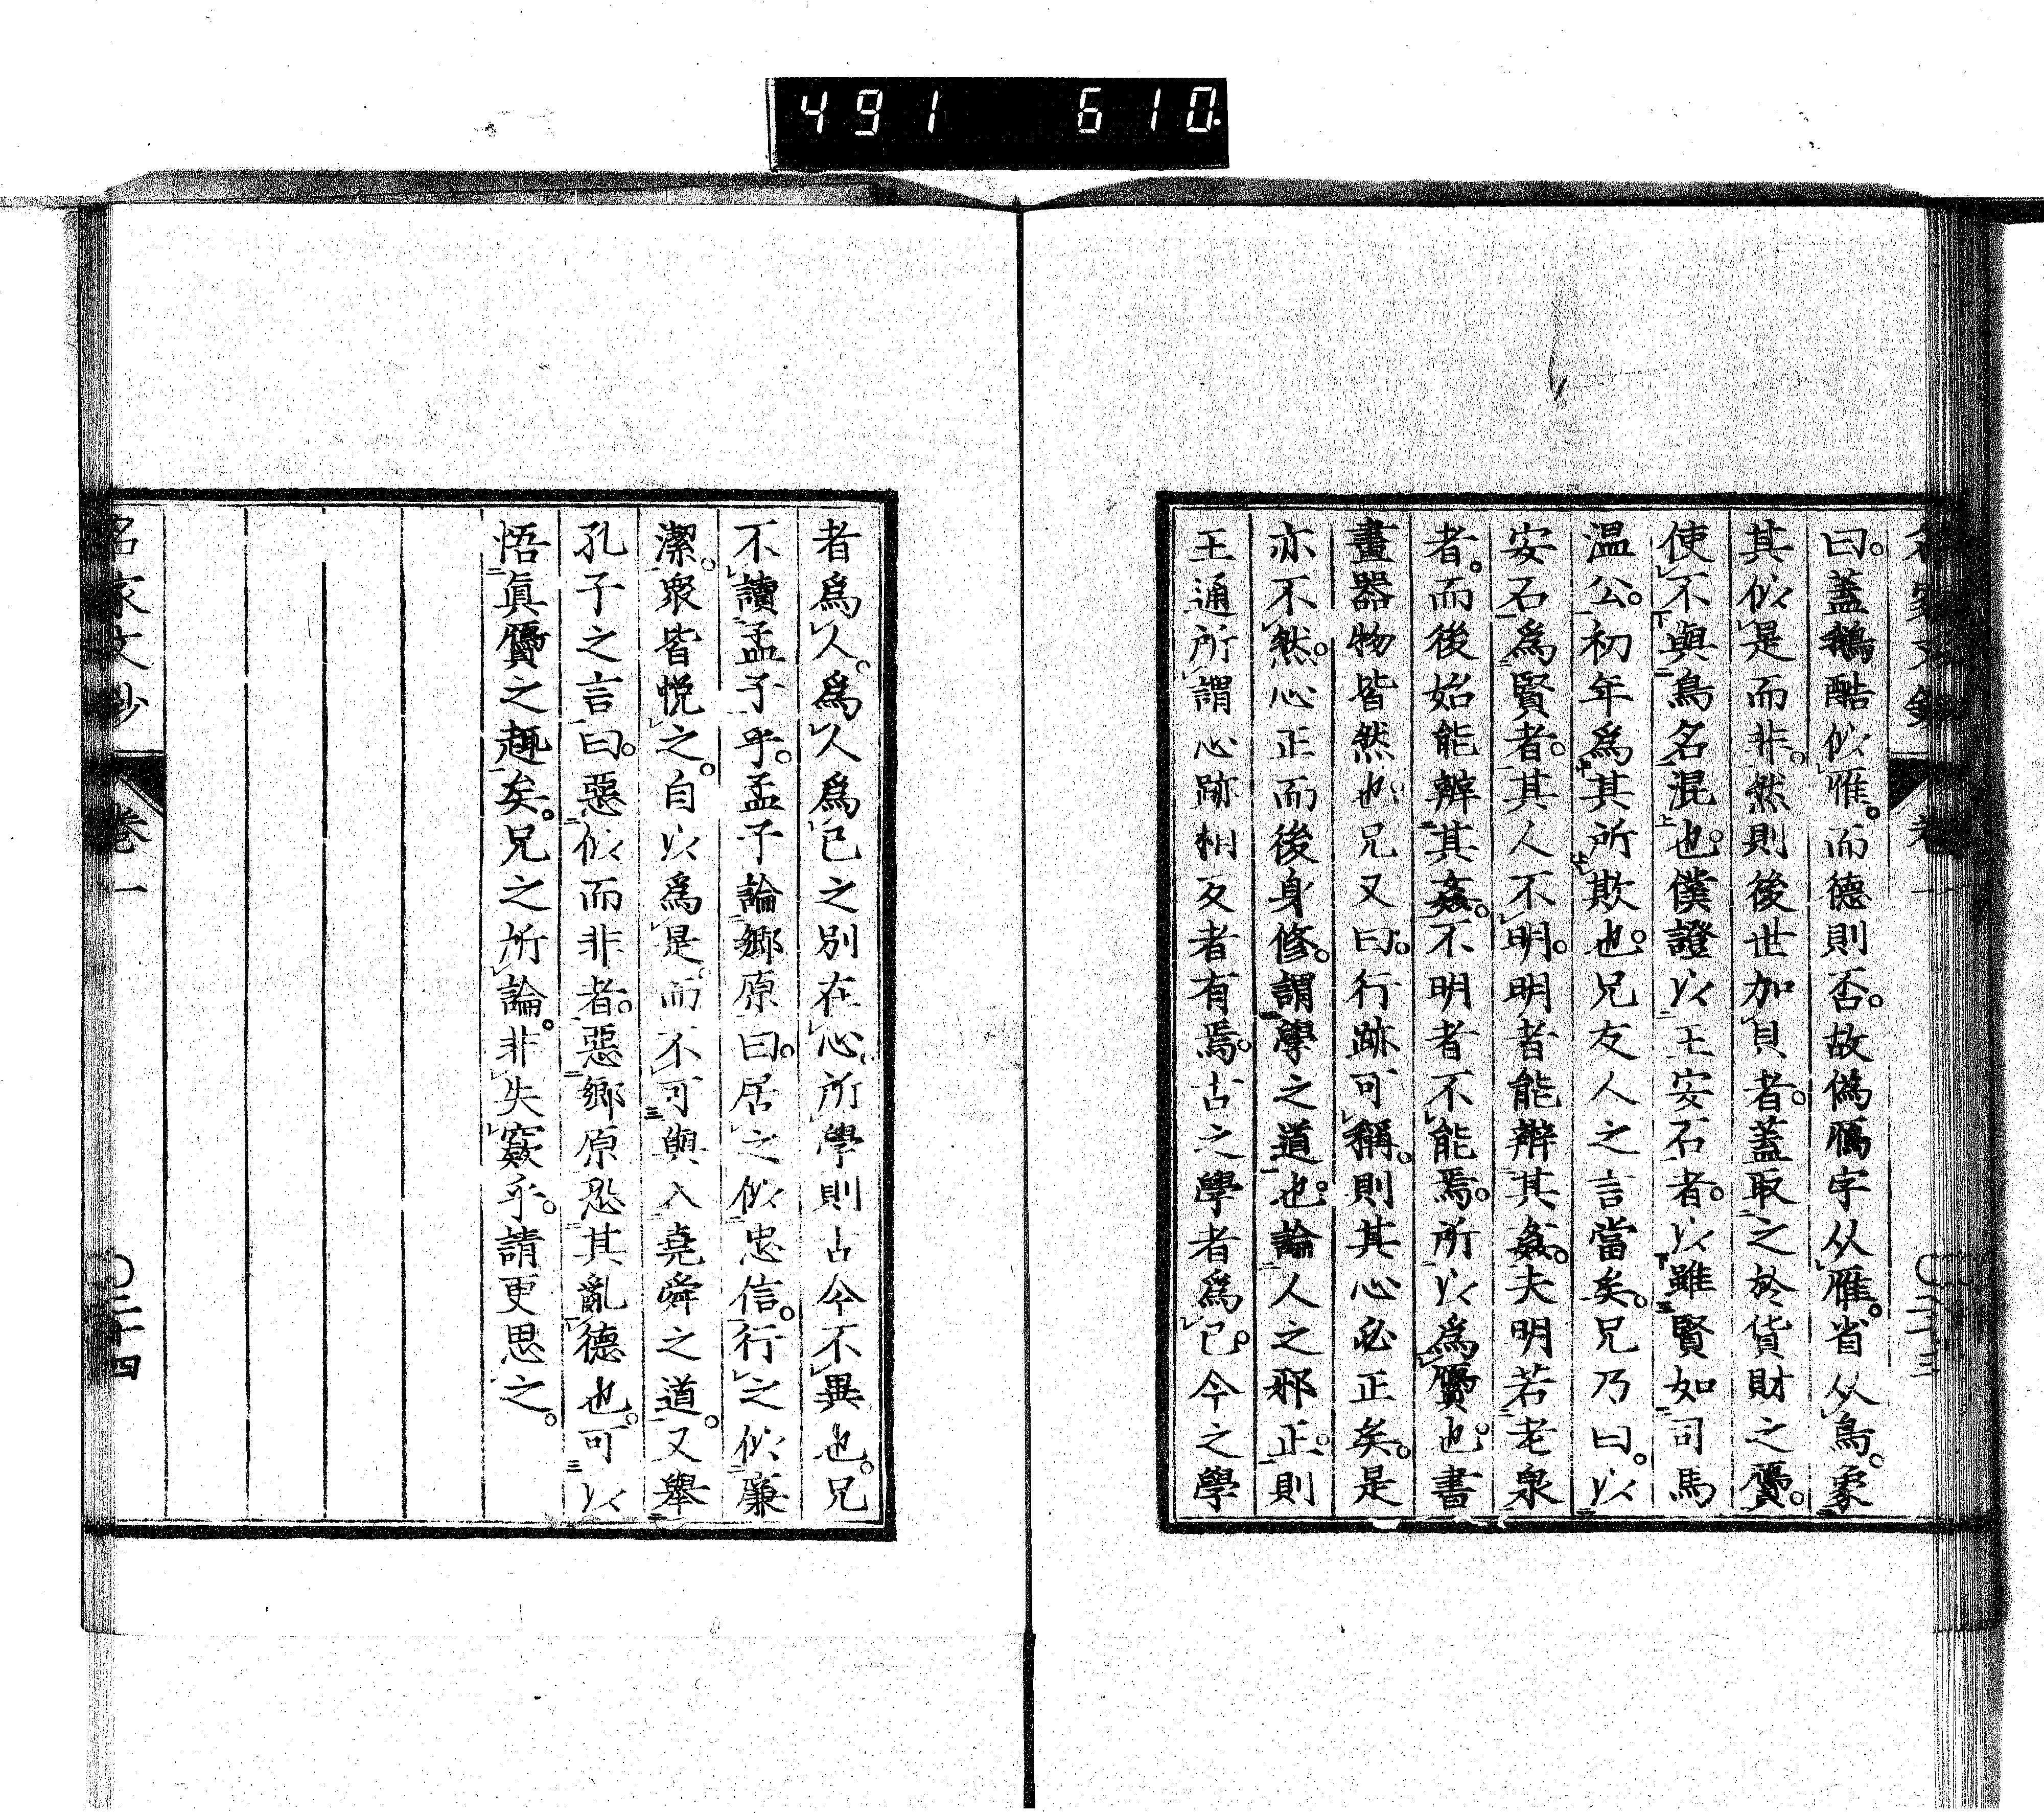 491 610
名家文鈔 卷一 〇二十三
曰。蓋鵝酷似雁。而德則否。故偽鴈字从雁。省从鳥。象
其似是而非。然則後世加貝者。蓋取之於貨財之贗。
使不與鳥名混也。僕證以王安石者。以雖賢如司馬
温公。初年為其所欺也。兄友人之言當矣。兄乃曰。以
安石為賢者。其人不明。明者能辨其姦。夫明若老泉
者。而後始能辨其姦。不明者不能焉。所以為贗也。書
畫器物皆然也。兄又曰。行跡可稱。則其心必正矣。是
亦不然。心正而後身修。謂學之道也。論人之邪正。則
王通所謂心跡相反者有焉。古之學者為己。今之學
者為人。為人為己之別在心。所學則古今不異也。兄
不讀孟子乎。孟子論鄉原曰。居之似忠信。行之似廉
潔。眾皆悅之。自以為是。而不可與入堯舜之道。又舉
孔子之言曰。惡似而非者。惡鄉原恐其亂德也。可以
悟眞贗之趣矣。兄之所論。非失竅乎。請更思之。
名家文鈔 卷一 〇二十四